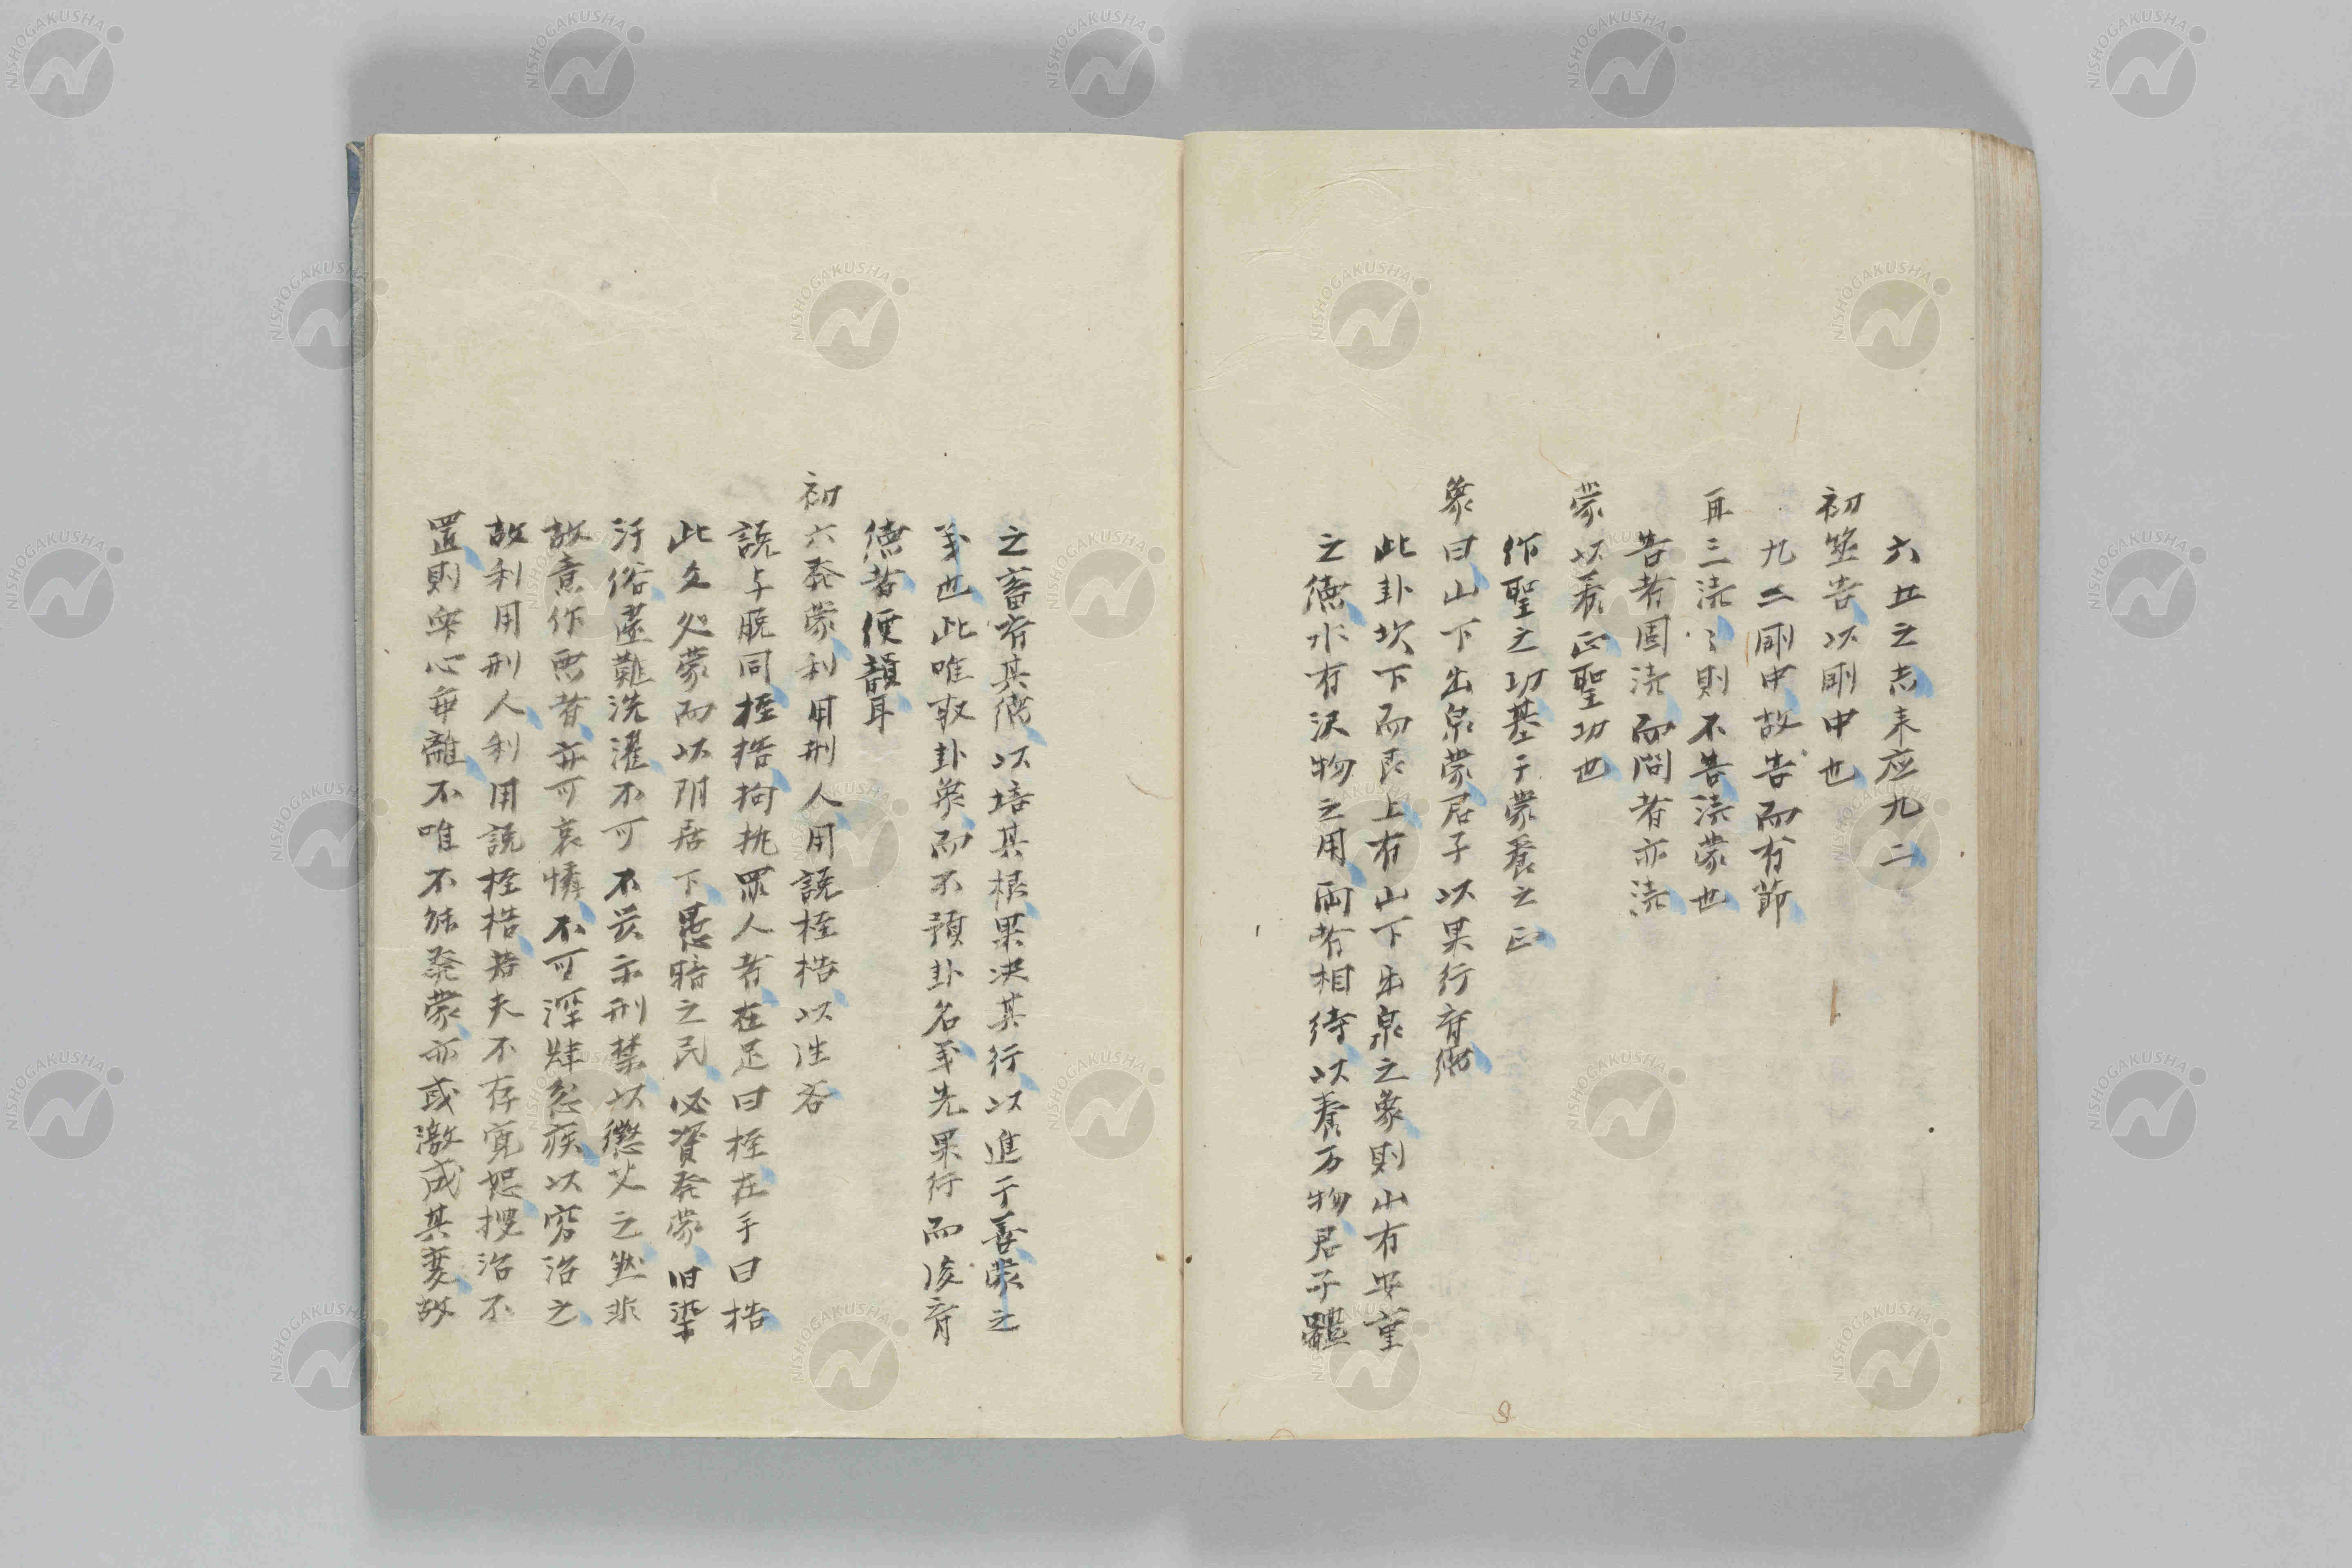 六五之志来応九二
初筮告以剛中也
九二剛中故告而有節
再三涜〻則不告涜蒙也
告者固涜而問者亦涜
蒙以養正聖功也
作聖之功基于蒙養之正
象曰山下出泉蒙君子以果行育徳
此卦坎下而艮上有山下出泉之象則山有安重
之徳水有沢物之用両者相待以養万物君子体
之畜其徳以培其根果決其行以進于善蒙之
義也此唯取卦象而不預卦名義先果行而後育
徳者便韻耳
初六発蒙利用刑人用説桎梏以往吝
説与脱同桎梏拘執罪人者在足曰桎在手曰梏
此爻処蒙而以阴居下愚暗之民必資発蒙旧染
汙俗難洗濯不可不示刑禁以懲艾之然非
故意作悪者亦可哀憐不可淫肆忿疾以窮治之
故利用刑人利用説桎梏若夫不存寛恕挍治不
置則衆心乖離不唯不能発蒙亦或激成其変故
NISHOGAKUSHA